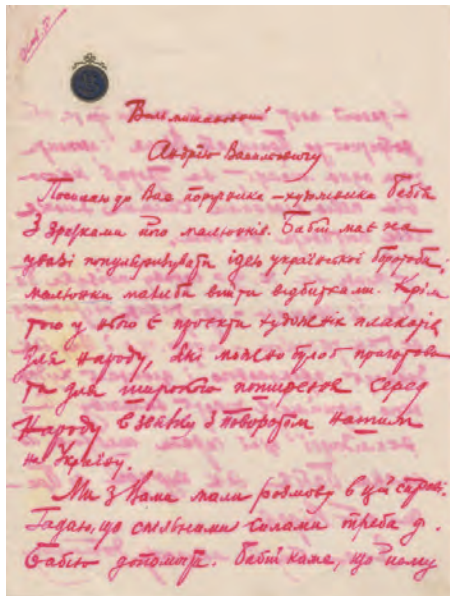 Вельмишановний
Андрію Васильовичу
Посилаю до Вас поручника – художника Бабія
з зразками його малюнків. Бабій має на
увазі популяризувати ідею української боротьби,
малюнки мали би вийти відбитками. Крім
того у нього є проєкти художніх плакатів
для народу, які можно було б приготова
ти для широкого поширення серед
народу в звязку з поворотом нашим
на Україну.
Ми з Вами мали розмову в цій справі.
Гадаю, що спільними силами треба д.
Бабію допомогти. Бабій каже, що йому